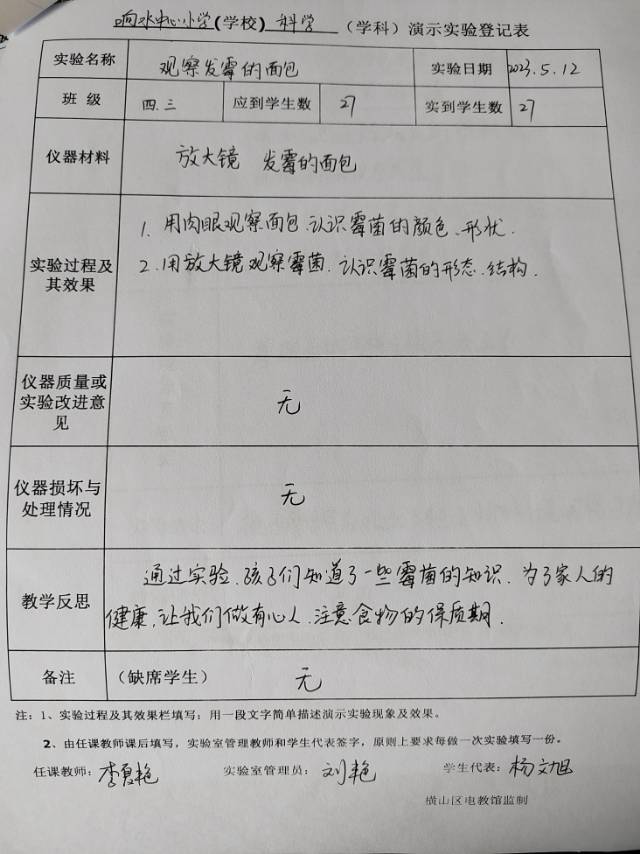 响水中心小学(学校) 科学 (学科)演示实验登记表
实验名称 观察发霉的面包 实验日期 2023.5.12
班 级 四.三 应到学生数 27 实到学生数 27
仪器材料 放大镜 发霉的面包
1. 用肉眼观察面包.认识霉菌的颜色、形状.
实验过程及
其效果
2.用放大镜观察霉菌.认识霉菌的形态.结构.
仪器质量或
实验改进意
见
无
仪器损坏与
处理情况
无
教学反思
通过实验.孩子们知道了一些霉菌的知识.为了家人的
健康,让我们做有心人.注意食物的保质期.
备注 (缺席学生) 无
注:1、实验过程及其效果栏填写:用一段文字简单描述演示实验现象及效果。
2、由任课教师课后填写,实验室管理教师和学生代表签字,原则上要求每做一次实验填写一份。
任课教师:李夏艳 实验室管理员:刘艳 学生代表:杨文旭
横山区电教馆监制